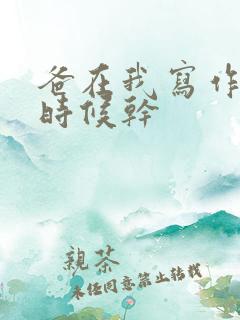 爸在我寫作
時候幹
親茶
未經同意禁止轉載